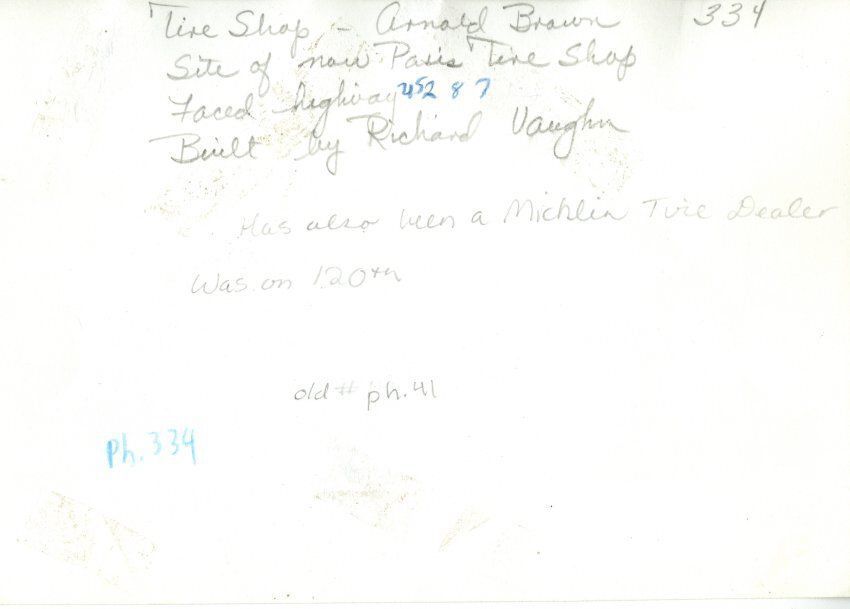 Tire Shop - Arnold Brown 334
Site of now Paris Tire Shop
Faced highway 452 & 7
Built by Richard Vaughn
Has also been a Michlin Tire Dealer
Was on 120th
old # ph. 41
ph. 334